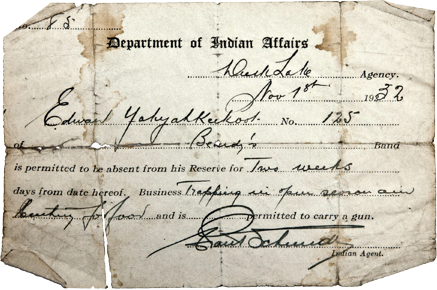 No. 85
Department of Indian Affairs
Duck Lake Agency.
Nov 1st 1932
Edward Yahyahkeekoot No. 125
of Beardy's Band
is permitted to be absent from his Reserve for Two weeks
days from date hereof. Business Trapping in open season and
hunting for food and is permitted to carry a gun.
Indian Agent.